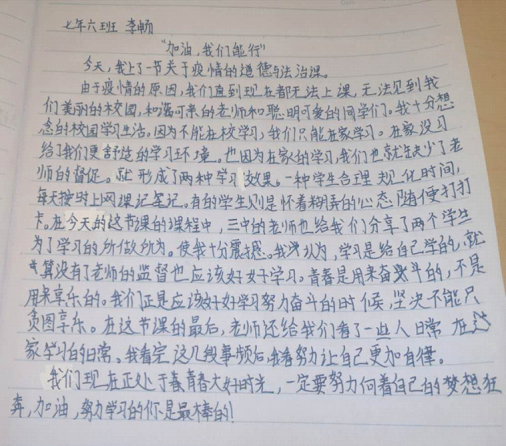 七年六班 李畅
"加油,我们能行"
今天,我上了一节关于疫情的道德与法治课。
由于疫情的原因,我们直到现在都无法上课,无法见到我
们美丽的校园,和蔼可亲的老师和聪明可爱的同学们。我十分想
念的校园学习生活。因为不能在校学习,我们只能在家学习。在家学习
给了我们更舒适的学习环境。也因为在家的学习,我们也就缺少了老
师的督促。就形成了两种学习效果。一种学生合理规化时间,
每天按时上网课记笔记。有的学生则是怀着糊弄的心态随便打打
卡。在今天的这节课的课程中,三中的老师也给我们分享了两个学生
为了学习的所做所为。使我十分震撼。我认为,学习是给自己学的,就
算没有了老师的监督也应该好好学习。青春是用来奋斗的,不是
用来享乐的。我们正是应该好好学习努力奋斗的时候,坚决不能只
贪图享乐。在这节课的最后,老师还给我们看了一些人日常在
家学习的日常。我看完这几段事频后,我着努力让自己更加自律。
我们现在正处于青春大好时光,一定要努力向着自己的梦想狂
奔,加油,努力学习的你是最棒的!